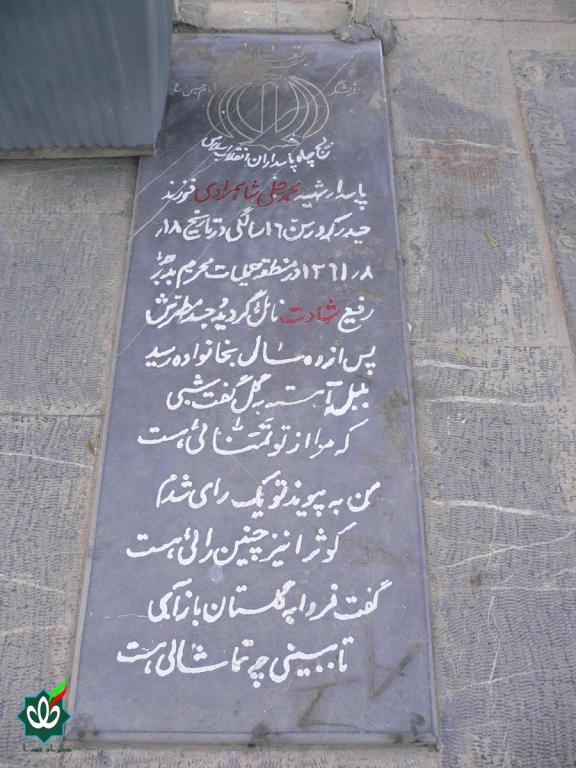 بسمه تعالی
از لشگر امام حسین ع
سپاه پاسداران انقلاب اسلامی
پاسدار شهید محمد علی شاهمرادی فرزند
حیدر که در سن ۱۶ سالگی در تاریخ ۱۸ر
۸ر۱۳۶۱ در منطقه عملیات محرم بدرجه
رفیع شهادت نائل گردید و جسد مطهرش
پس از ده سال بخانواده رسید
بلبل آهسته به گل گفت شبی
که مرا از تو تمنائی هست
من به پیوند تو یک رای شدم
گر تو را نیز چنین رائی هست
گفت فردا به گلستان بازآی
تا ببینی چه تماشائی هست